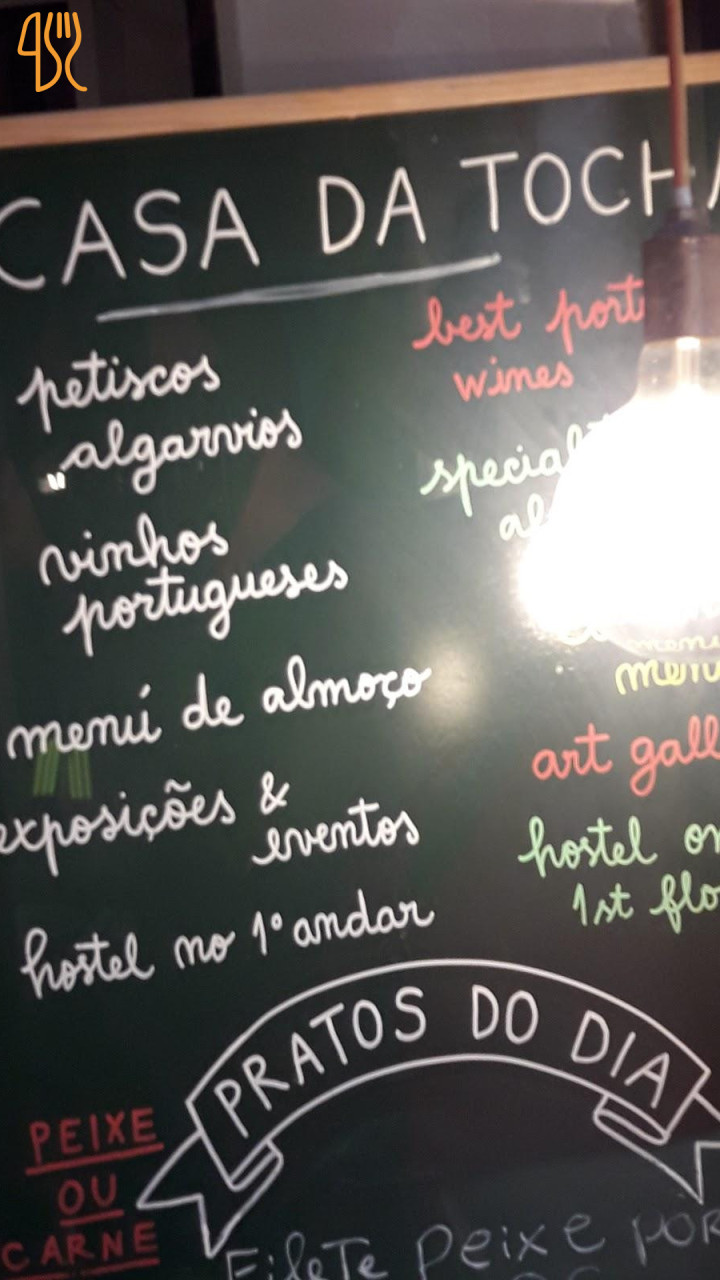 CASA DA TOCHA
petiscos
algarvios
vinhos
portugueses
menú de almoço
exposições &
eventos
hostel no 1º andar
best
wines
art
hostel
1st
PRATOS DO DIA
PEIXE
OU
CARNE
Filete peixe